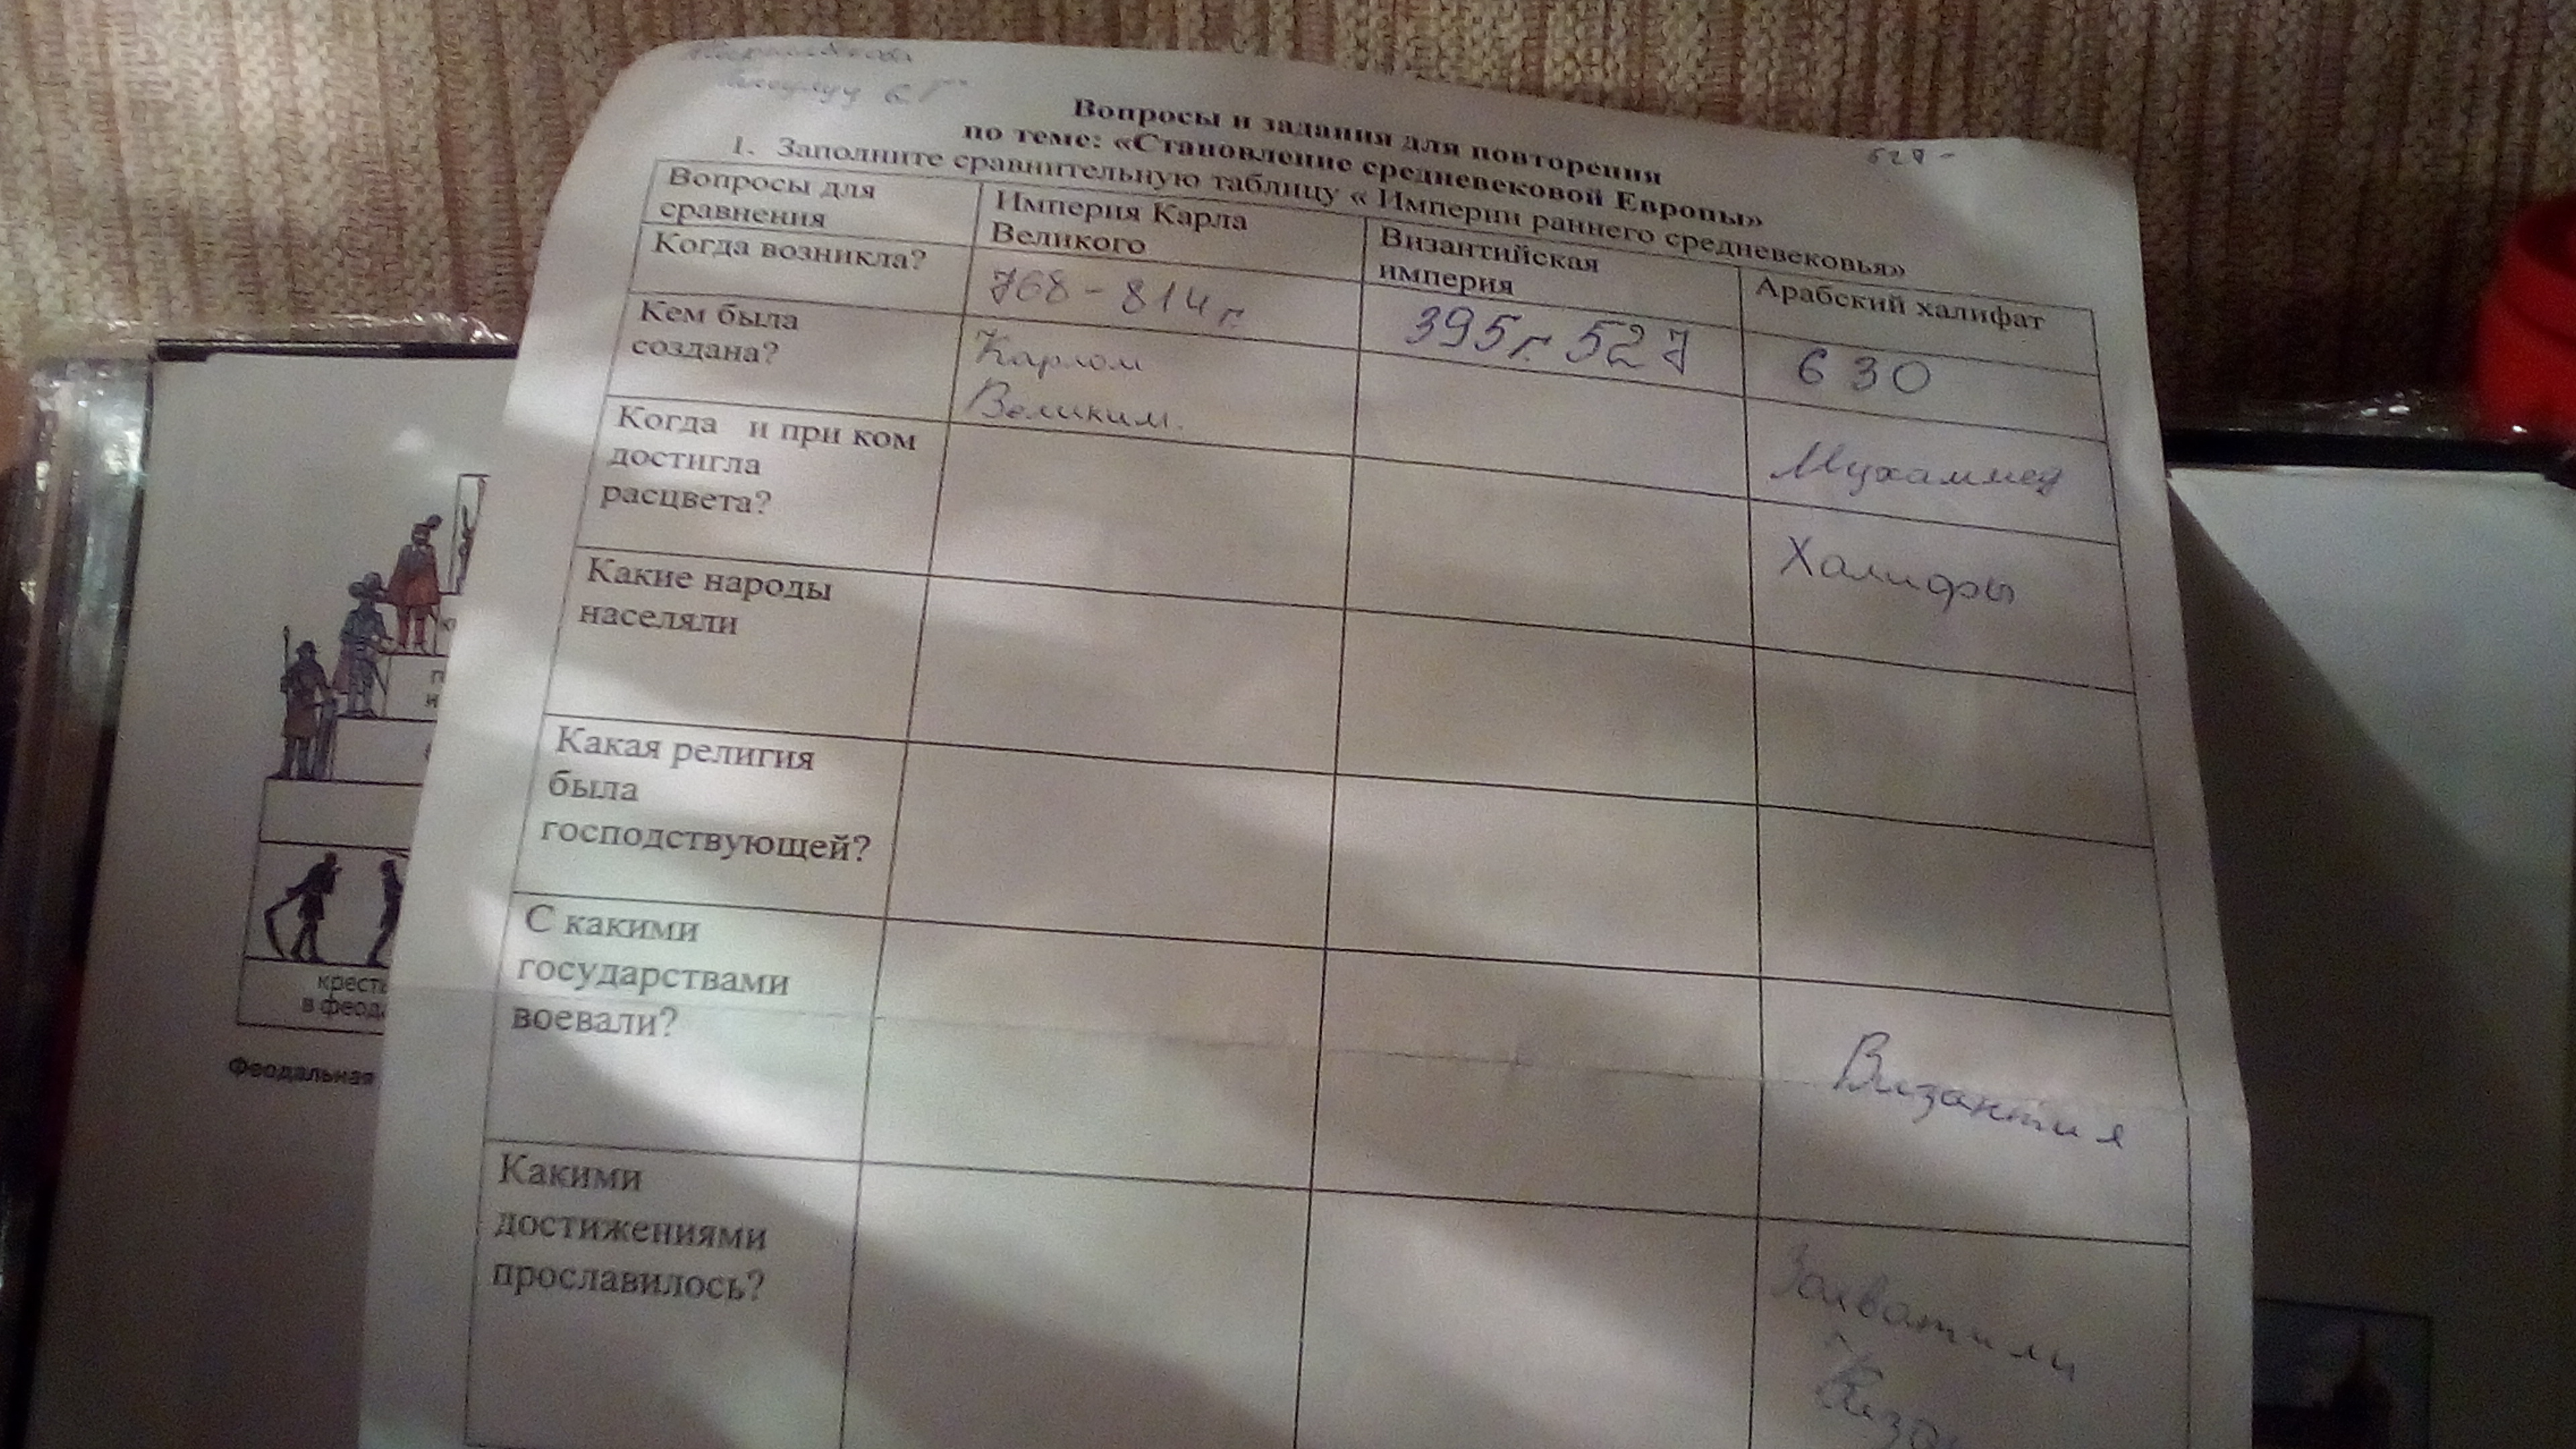 б. г
629-
Вопросы и задания для повторения
по теме: «Становление средневековой Европы»
1. Заполните сравнительную таблицу « Империи раннего средневековья»
Вопросы для
сравнения
Империя Карла
Великого
Византийская
империя
Арабский халифат
Когда возникла?
768-814г.
395г. 527
630
Кем была
создана?
Карлом
Великим.
Мухаммед
Когда и при ком
достигла
расцвета?
Халифы
Какие народы
населяли
Какая религия
была
господствующей?
С какими
государствами
воевали?
Византия
Какими
достижениями
прославилось?
Захватили
крест
в феод
Феодальная